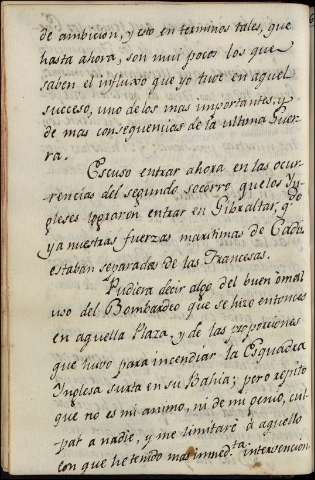 de ambicion, y esto en terminos tales, que
hasta ahora, son mui pocos los que
saben el influxo que yo tuve en aquel
succeso, uno de los mas importantes, y
de mas consequencias de la ultima Guer-
ra.
Escuso entrar ahora en las ocur-
rencias del segundo socorro que los Yn-
gleses lograron entrar en Gibraltar, q.do
ya nuestras fuerzas maritimas de Cadiz
estaban separadas de las Francesas.
Pudiera decir algo del buen ò mal
uso del Bombardeo que se hizo entonces
en aquella Plaza, y de las proporciones
que huvo para incendiar la Esquadra
Ynglesa surta en su Bahia; pero repito
que no es mi animo, ni de mi genio, cul-
par a nadie, y me limitarè à aquello
con que he tenido mas inmed.ta intervencion